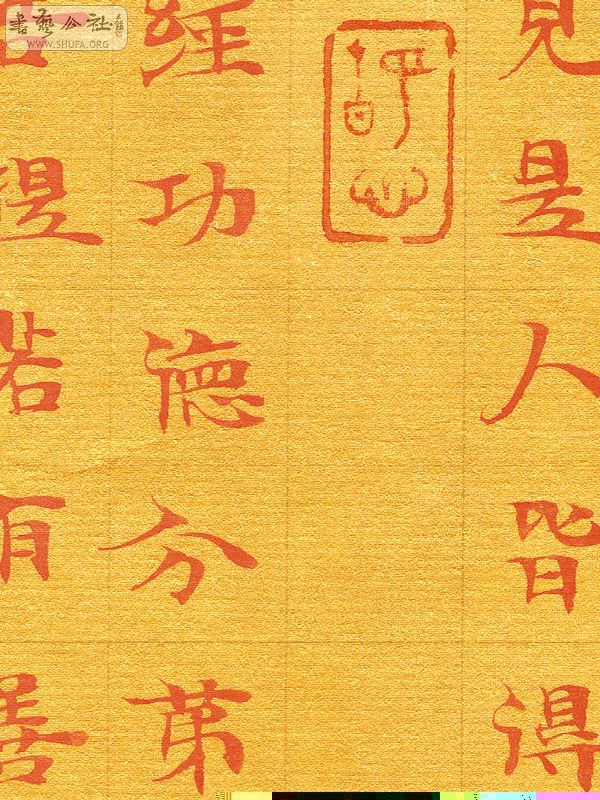 書藝公社
WWW.SHUFA.ORG
見是人皆得
經功德分苐
提若有善